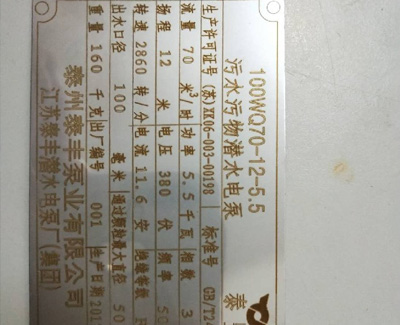 100WQ70-12-5.5
污水污物潜水电泵
泰
生产许可证号 (苏)XK06-003-00198 标准号 GB/T24
流量 70 米³/时 功率 5.5 千瓦 相数 3
扬程 12 米 电压 380 伏 频率 50
转速 2860 转/分 电流 11.6 安 绝缘等级
出水口径 100 毫米 通过颗粒最大直径 50
重量 160 千克 出厂编号 001 生产日期 201
泰州泰丰泵业有限公司
江苏泰丰潜水电泵厂(集团)